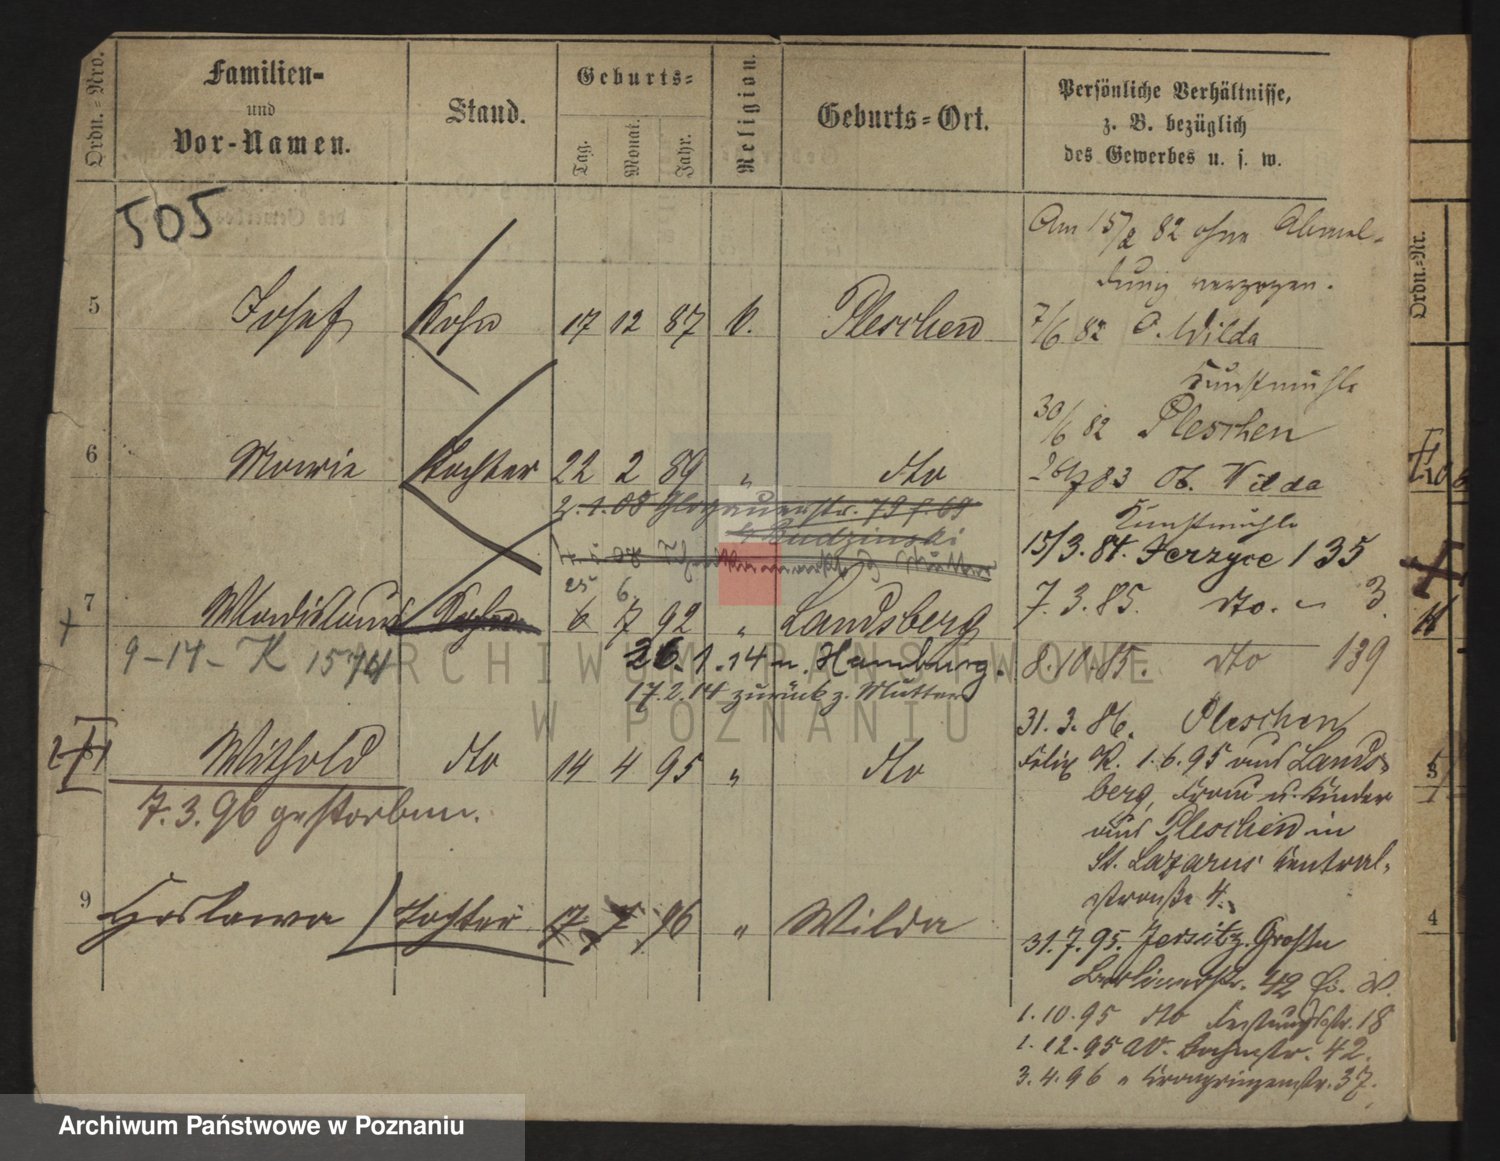 Ordn.=Nro.
Familien=
und
Vor-Namen.
Stand.
Geburts=
Tag.
Monat.
Jahr.
Religion.
Geburts=Ort.
Persönliche Verhältnisse,
z. B. bezüglich
des Gewerbes u. s. w.
505
Am 15/2 82 ohne Abmel-
dung verzogen.
5 Josef Sohn 17 12 87 k. Pleschen
7/6 82 O. Wilda
Kunstmühle
30/6 82 Pleschen
6 Marie Tochter 22 2 89 " dto
83 Ob. Wilda
2.1.08 Glogauerstr. 79
b Budzinski
Kunstmühle
15/3. 84. Jerzyce 135
25 6.
7 Wladislaus Sohn 6 7 92 " Landsberg
7.3.85. dto. - 3
9-14- K 1574
26.1.14 n. Hamburg.
8.10.85. dto 139
17.2.14 zurück z. Mutter
31.3.86. Pleschen
8 Withold dto 14 4 95 " dto
7.3.96 gestorben.
Felix K. 1.6.95 aus Lands-
berg, Frau u. Kinder
aus Pleschen in
St. Lazarus Central-
straße 4.
9 Hoslawa Tochter 17 7 96 " Wilda
31.7.95. Jersitz. Große
Berlinerstr. 42
1.10.95 dto Festungsstr. 18
1.12.95 Bahnstr. 42.
3.4.96 " Kronprinzenstr. 37.
Ordn.=Nr.
3
4
ARCHIWUM PAŃSTWOWE
W POZNANIU
Archiwum Państwowe w Poznaniu